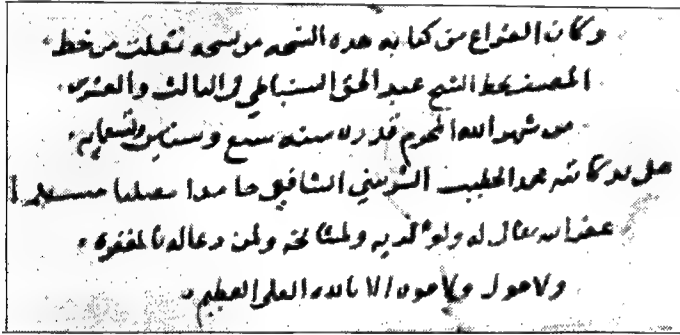 وكان الفراغ من كتابة هذه النسخه من نسخه نقلت من خط
المصنف بخط الشيخ عبد الحق السنباطي في الثالث والعشرين
من شهر الله المحرم قدره سنه سبع وستين وتسعمايه
على يد كاتبه محمد الخطيب الشربيني الشافعي حامدا مصليا مسلما
غفر الله تعالى له ولوالديه ولمشائخه ولمن دعا له بالمغفره
ولا حول ولا قوه الا بالله العلي العظيم